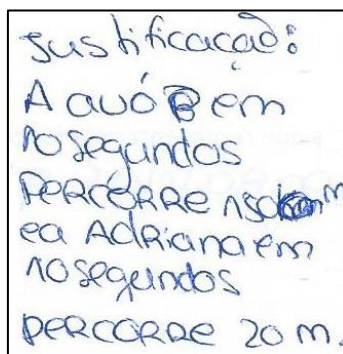 Justificação:
A avó em
10 segundos
PERCORRE 15 m
e a Adriana em
10 segundos
PERCORRE 20 m.